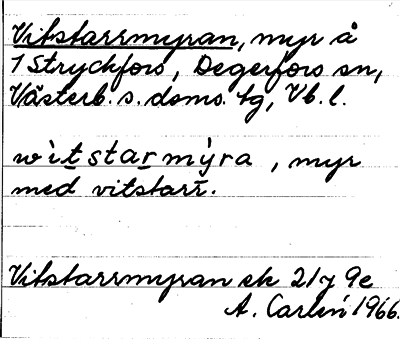 Vitstarrmyran, myr å
1 Stryckfors, Degerfors sn,
Västerb. s. doms. tg, Vb. l.
wìtstarmýra, myr
med vitstarr.
Vitstarrmyran ek 21 j 9e
A. Carlén 1966.